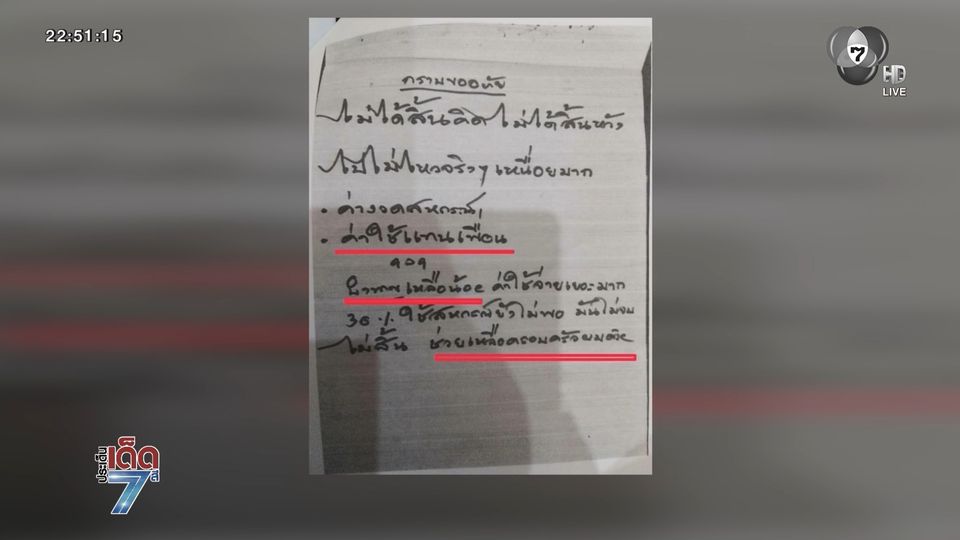 22:51:15
7
HD
LIVE
กราบขออภัย
ไม่ได้สิ้นคิด ไม่ได้สิ้นหวัง
ไปไม่ไหวจริงๆ เหนื่อยมาก
• ค่างวดสหกรณ์
• ค่าใช้แทนเพื่อน
ฯลฯ
เหลือน้อย ค่าใช้จ่ายเยอะมาก
30 % ใช้สหกรณ์ยังไม่พอ มันไม่จบ
ไม่สิ้น ช่วยเหลือครอบครัวผมด้วย
ประเด็นเด็ด
7สี